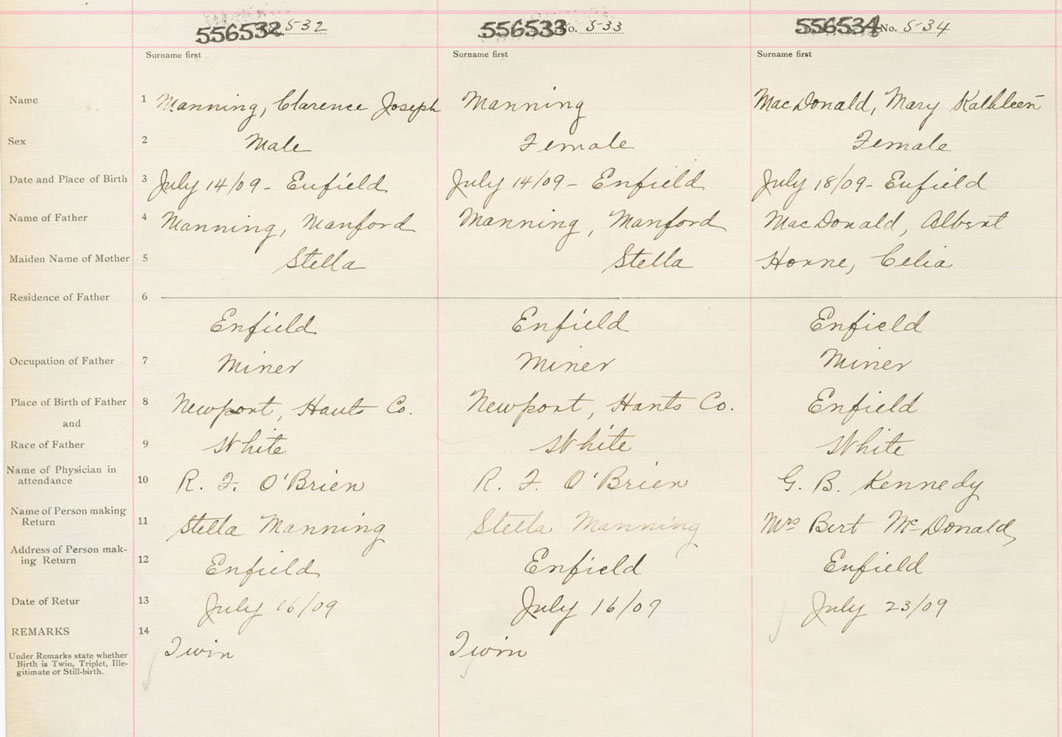 556532 532 556533 No. 533 556534 No. 534
Surname first Surname first Surname first
Name 1 Manning, Clarence Joseph Manning MacDonald, Mary Kathleen
Sex 2 Male Female Female
Date and Place of Birth 3 July 14/09 - Enfield July 14/09 - Enfield July 18/09 - Enfield
Name of Father 4 Manning, Manford Manning, Manford MacDonald, Albert
Maiden Name of Mother 5 Stella Stella Horne, Celia
Residence of Father 6
Enfield Enfield Enfield
Occupation of Father 7 Miner Miner Miner
Place of Birth of Father 8 Newport, Hants Co. Newport, Hants Co. Enfield
and
Race of Father 9 White White White
Name of Physician in
attendance 10 R. F. O'Brien R. F. O'Brien G. B. Kennedy
Name of Person making
Return 11 Stella Manning Stella Manning Mrs Bert McDonald
Address of Person mak-
ing Return 12 Enfield Enfield Enfield
Date of Retur 13 July 16/09 July 16/09 July 23/09
REMARKS 14
Under Remarks state whether Twin Twin
Birth is Twin, Triplet, Ille-
gitimate or Still-birth.